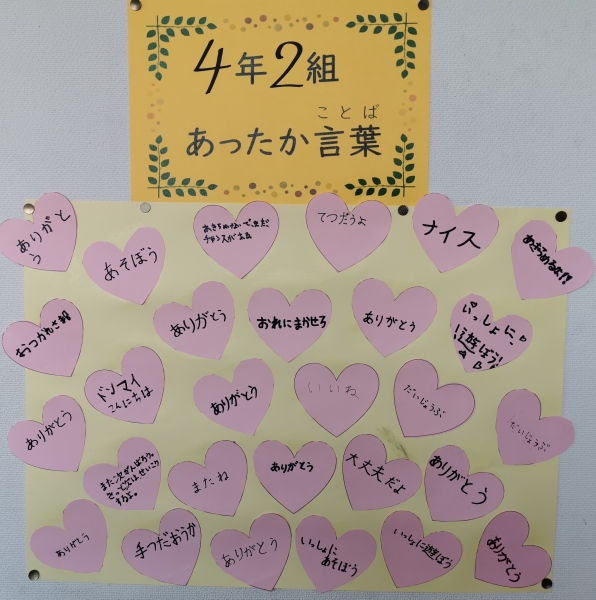 4年2組
ことば
あったか言葉
ありがと
う
あそぼう
あきらめないで!まだ
チャンスがある
てつだうよ
ナイス
あきらめるな!!
おつかれさま
ありがとう
おれにまかせろ
ありがとう
いっしょに、
遊ぼう!
ありがとう
ドンマイ
こんにちは
ありがとう
いいね
だいじょうぶ
だいじょうぶ
また次がんばろう。
きっと次はせいこう
するよ。
またね
ありがとう
大丈夫だよ
ありがとう
ありがとう
手つだおうか
ありがとう
いっしょに
あそぼう
いっしょに遊ぼう
ありがとう